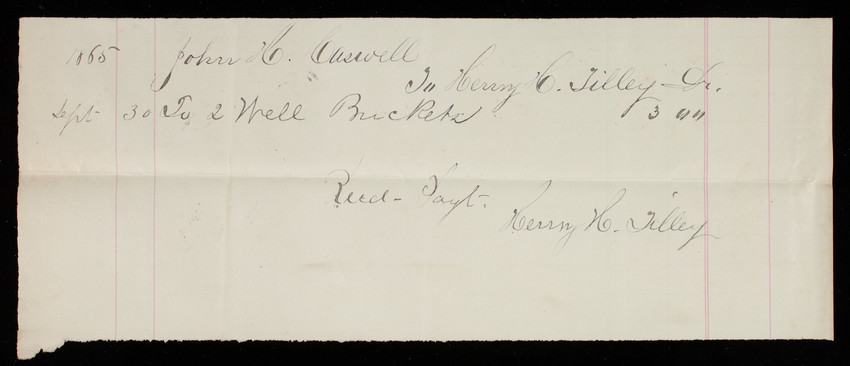 1865 John H. Caswell
To Henry H. Tilley Dr.
Sept 30 To 2 Well Buckets 3 00
Recd- Payt.
Henry H. Tilley